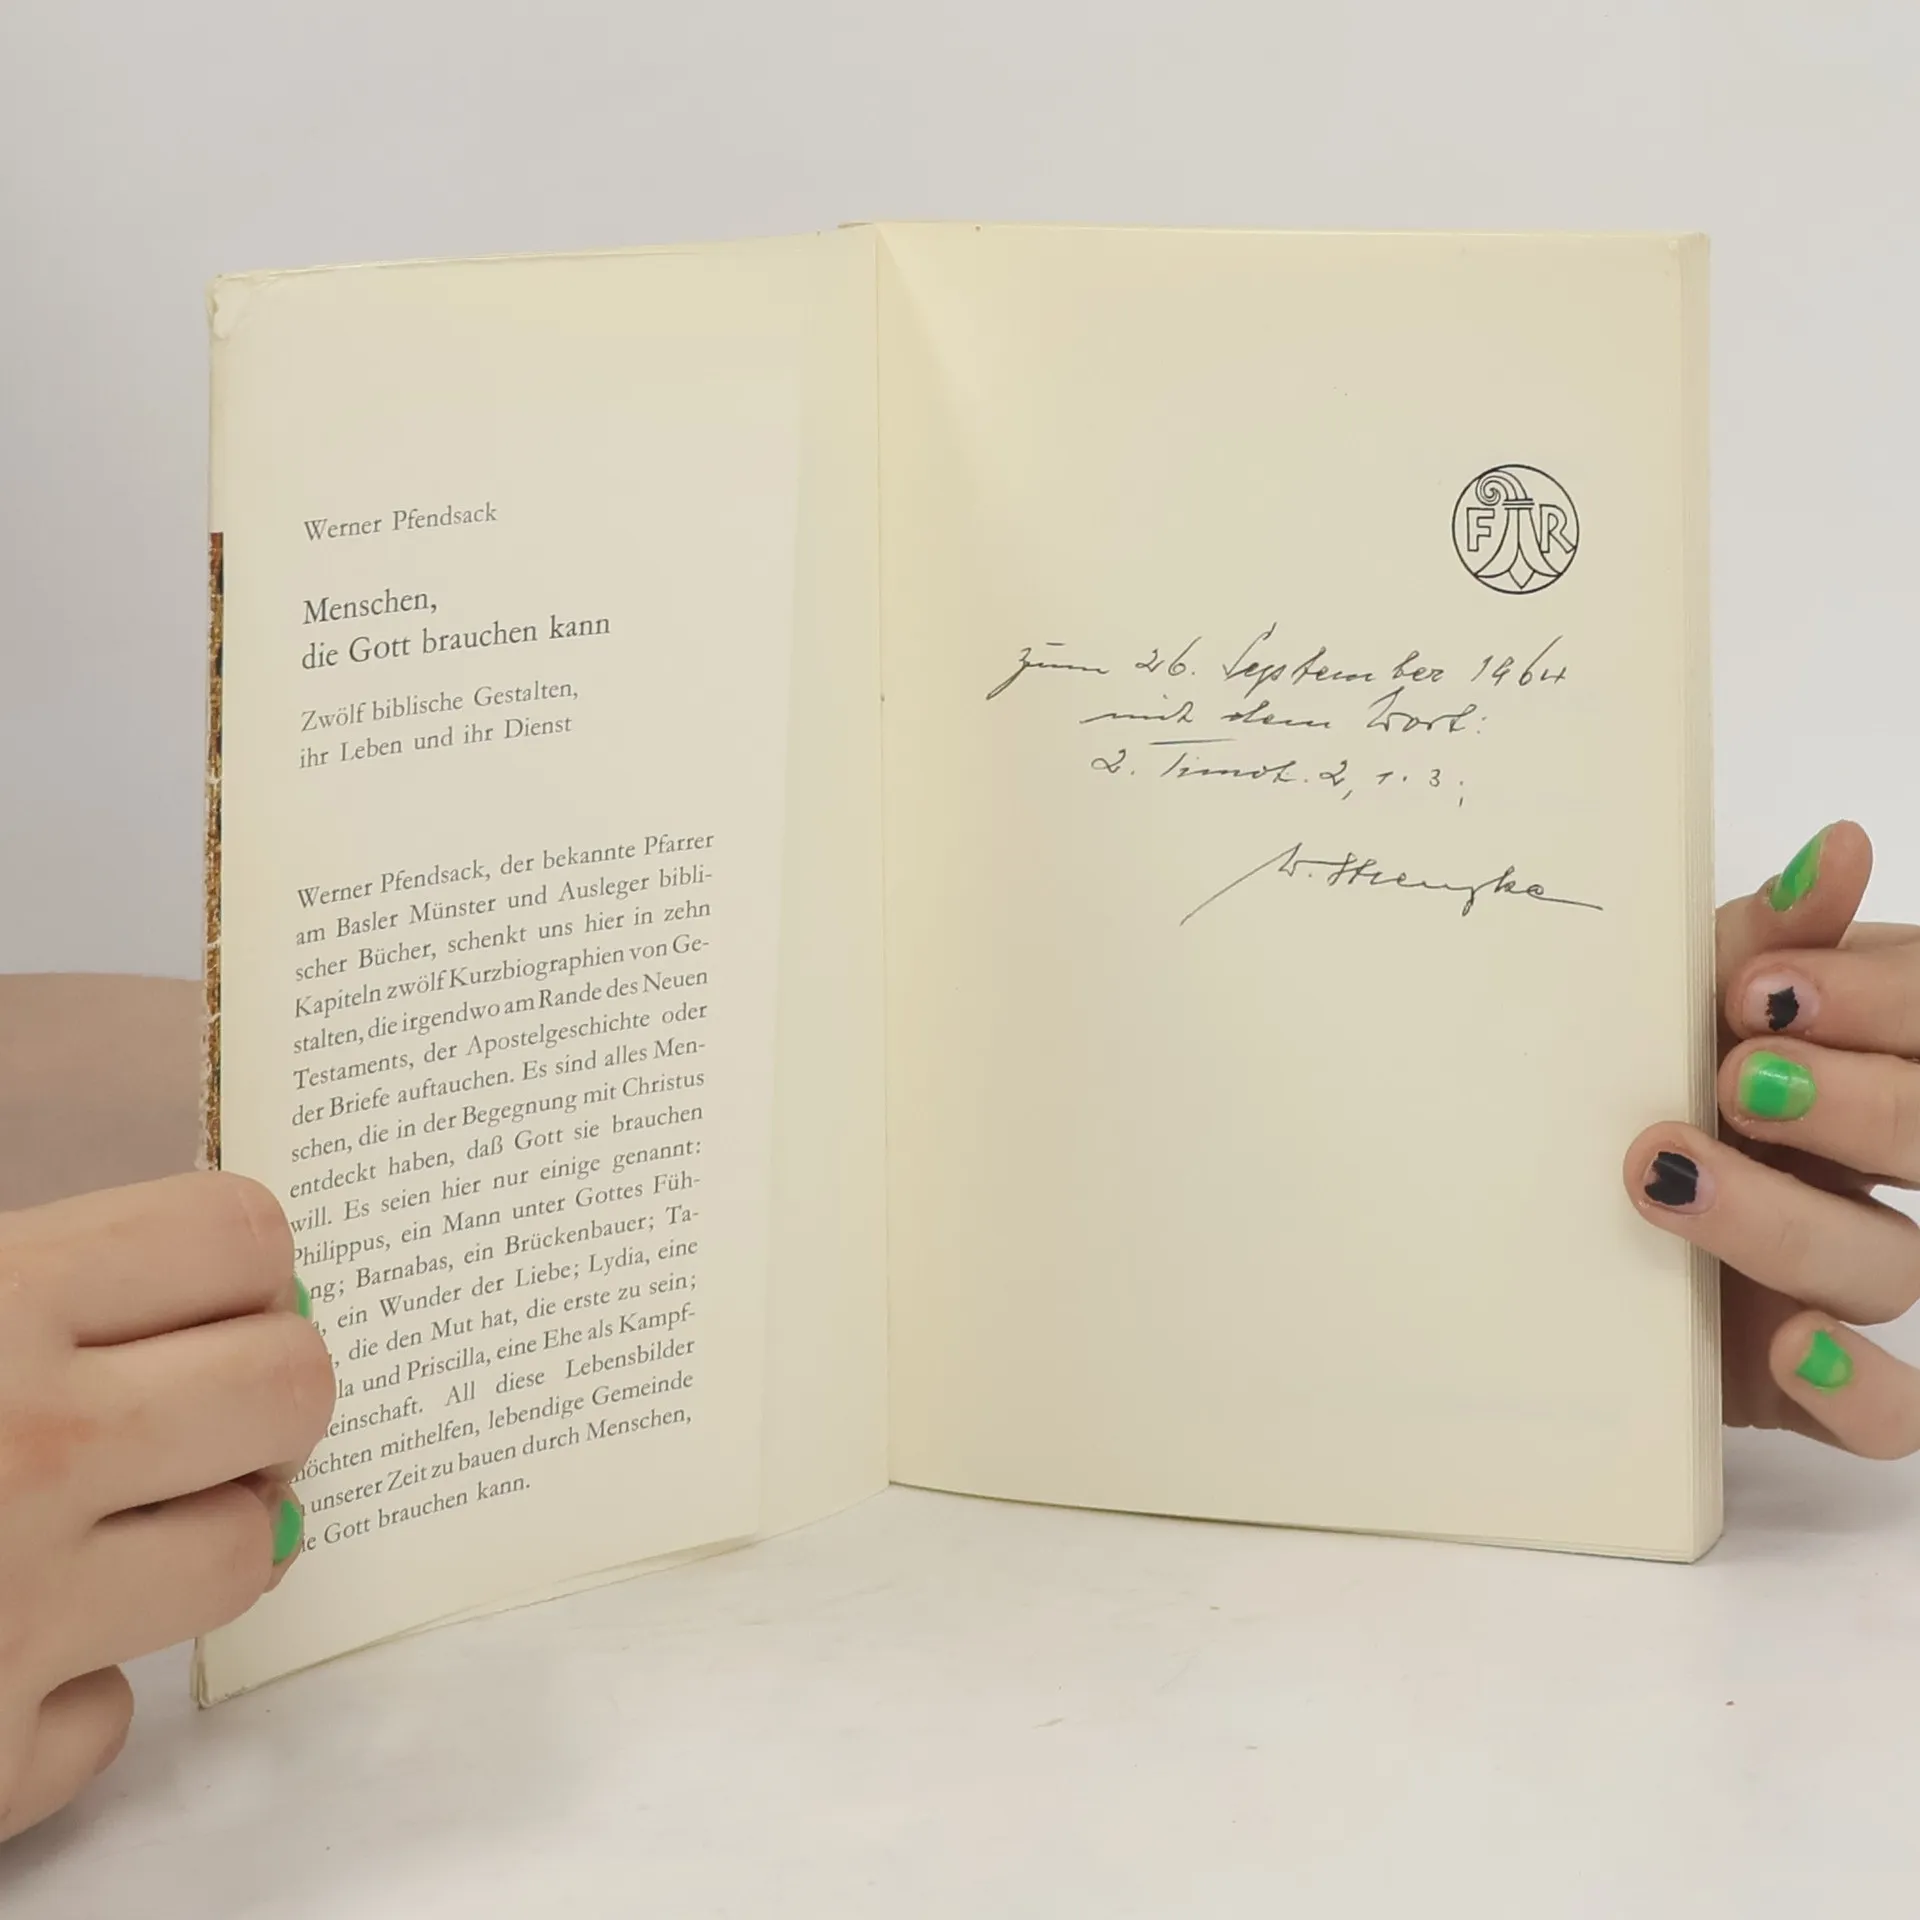 Werner Pfendsack
Menschen,
die Gott brauchen kann
Zwölf biblische Gestalten,
ihr Leben und ihr Dienst
Werner Pfendsack, der bekannte Pfarrer
am Basler Münster und Ausleger bibli-
scher Bücher, schenkt uns hier in zehn
Kapiteln zwölf Kurzbiographien von Ge-
stalten, die irgendwo am Rande des Neuen
Testaments, der Apostelgeschichte oder
der Briefe auftauchen. Es sind alles Men-
schen, die in der Begegnung mit Christus
entdeckt haben, daß Gott sie brauchen
will. Es seien hier nur einige genannt:
Philippus, ein Mann unter Gottes Füh-
ng; Barnabas, ein Brückenbauer; Ta-
, ein Wunder der Liebe; Lydia, eine
, die den Mut hat, die erste zu sein;
la und Priscilla, eine Ehe als Kampf-
einschaft. All diese Lebensbilder
möchten mithelfen, lebendige Gemeinde
unserer Zeit zu bauen durch Menschen,
ie Gott brauchen kann.
F R
zum 26. September 1964
mit dem Wort:
2. Timot. 2, 1. 3;
W.